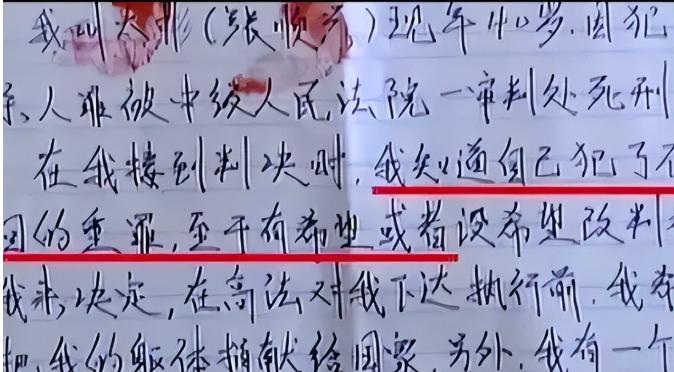 我叫大彬(张顺兴)现年40岁.因犯
杀人罪被中级人民法院一审判处死刑
在我接到判决时,我知道自己犯了不
的重罪,至于有希望或者没希望改判
我来决定,在高法对我下达执行前.我希
把我的躯体捐献给国家.另外.我有一个